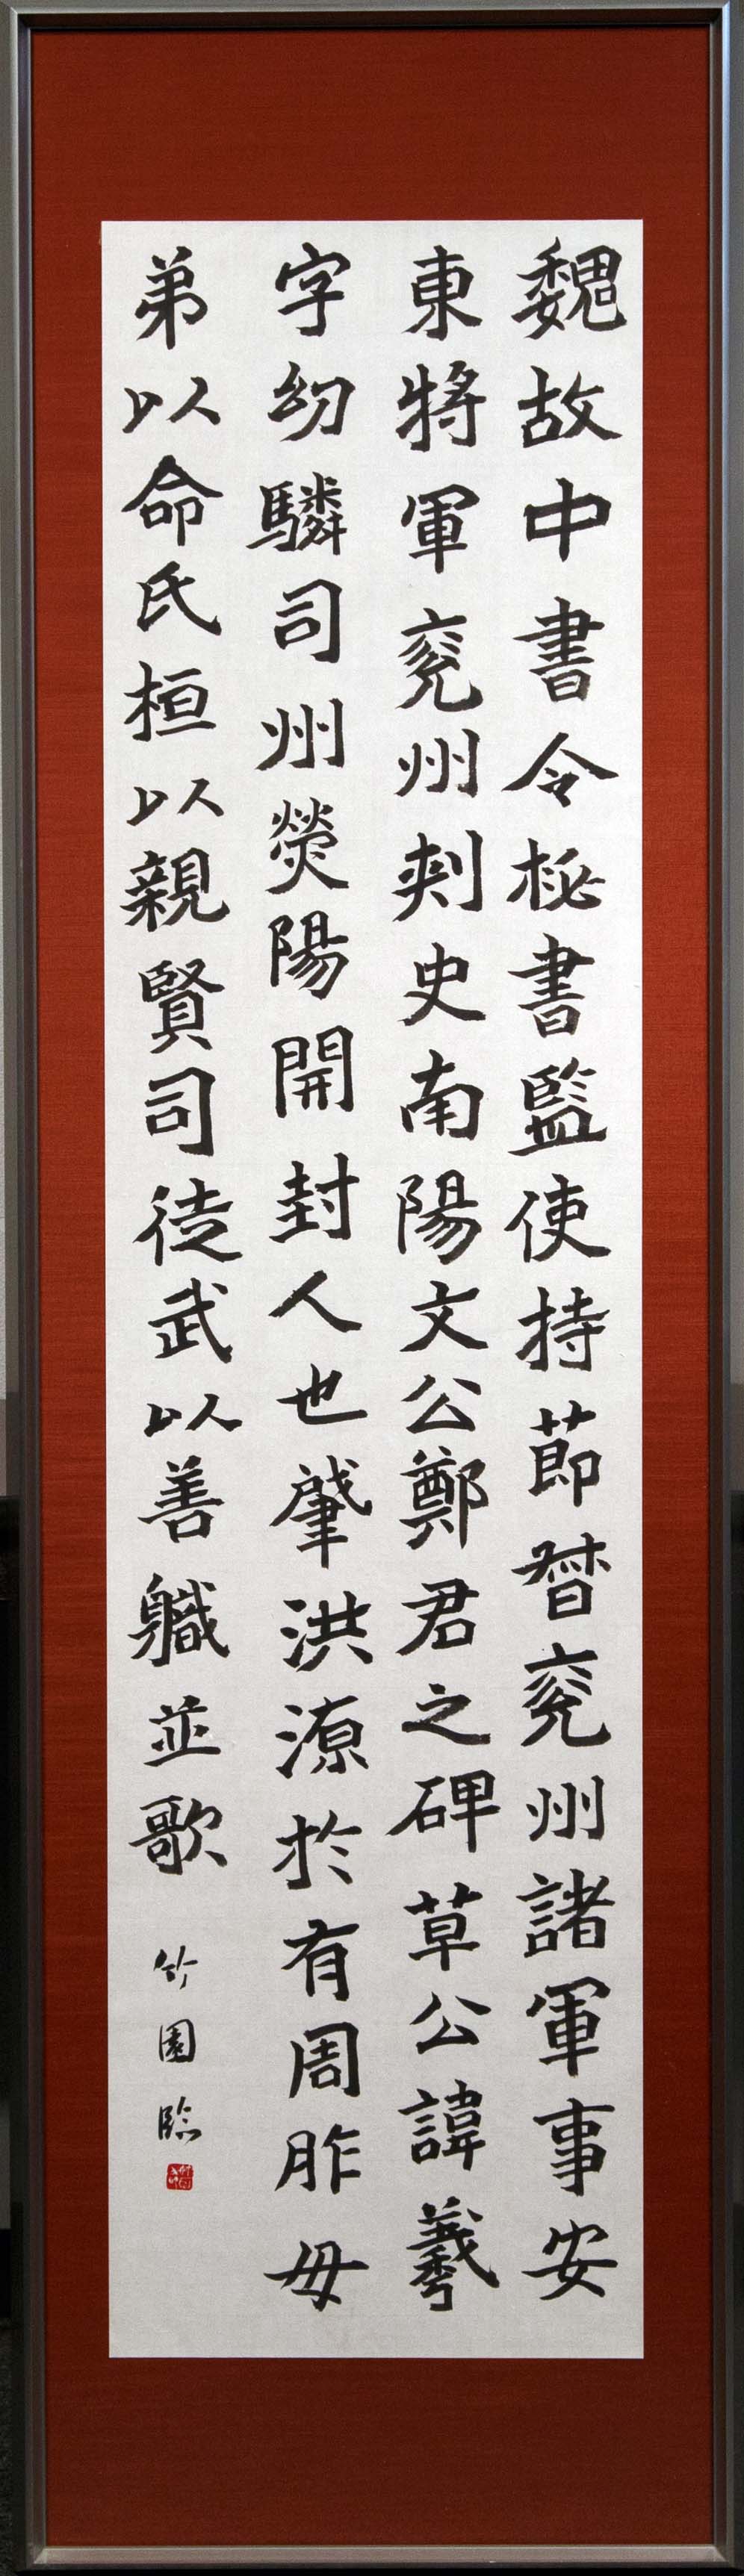 魏故中書令秘書監使持節督兖州諸軍事安
東將軍兖州刾史南陽文公鄭君之碑草公諱羲
字幼驎司州熒陽開封人也肇洪源於有周胙母
弟以命氏桓以親賢司徒武以善軄並歌
竹園臨